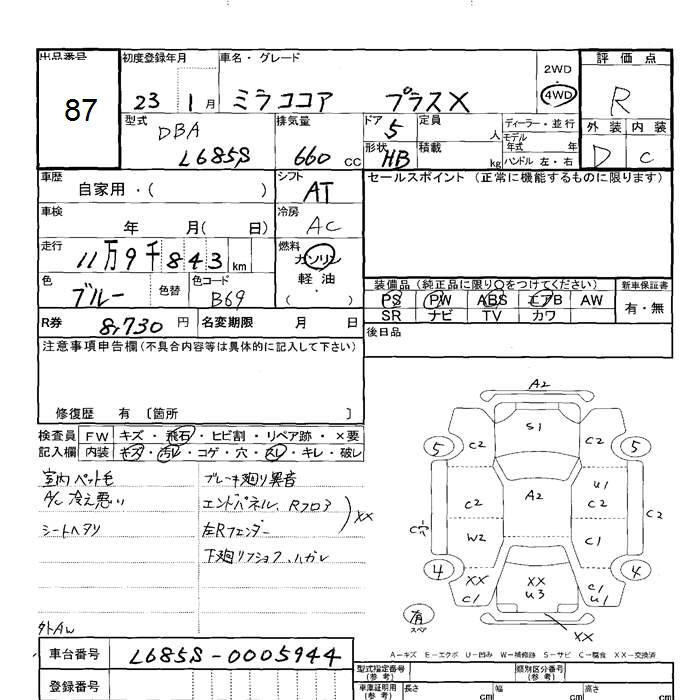 出品番号 初度登録年月 車名・グレード 評価点
87
23 1月 ミラココア プラスX 2WD・4WD R
型式 DBA L685S
排気量 660 cc
ドア 5 定員 人
形状 HB 積載 kg
ディーラー・並行
モデル年式 年
ハンドル 左・右
外装 内装
D C
車歴 自家用・( )
シフト AT
セールスポイント (正常に機能するものに限ります)
車検 年 月( 日)
冷房 AC
走行 11万9千843km
燃料 ガソリン 軽油 ・ ( )
色 ブルー 色替 色コード B69
装備品 (純正品に限り○をつけてください) 新車保証書
PS PW ABS エアB AW 有・無
SR ナビ TV カワ
R券 8,730 円 名変期限 月 日
後日品
注意事項申告欄(不具合内容等は具体的に記入して下さい)
修復歴 有 〔箇所 〕
検査員 FW キズ・飛石・ヒビ割・リペア跡・×要
記入欄 内装 キズ・汚レ・コゲ・穴・スレ・キレ・破レ
室内ペット毛 ブレーキ廻り異音
A/C 冷え悪い エンドパネル、Rフロア
XX
シートヘタリ 左Rフェンダー
下廻リフショク、ハガレ
外AW
A2
S1
5 C2 C2 5
A2
U1
C2 C2 C2
W2 C1
4 4
XX XX
C1 U3 C1 U1
有
スペア
XX
A−キズ E−エクボ U−凹み W−補修跡 S−サビ C−腐食 XX−交換済
車台番号 L685S-0005944
型式指定番号(参考) 類別区分番号(参考)
登録番号
車庫証明用(参考) 長さ cm 幅 cm 高さ cm